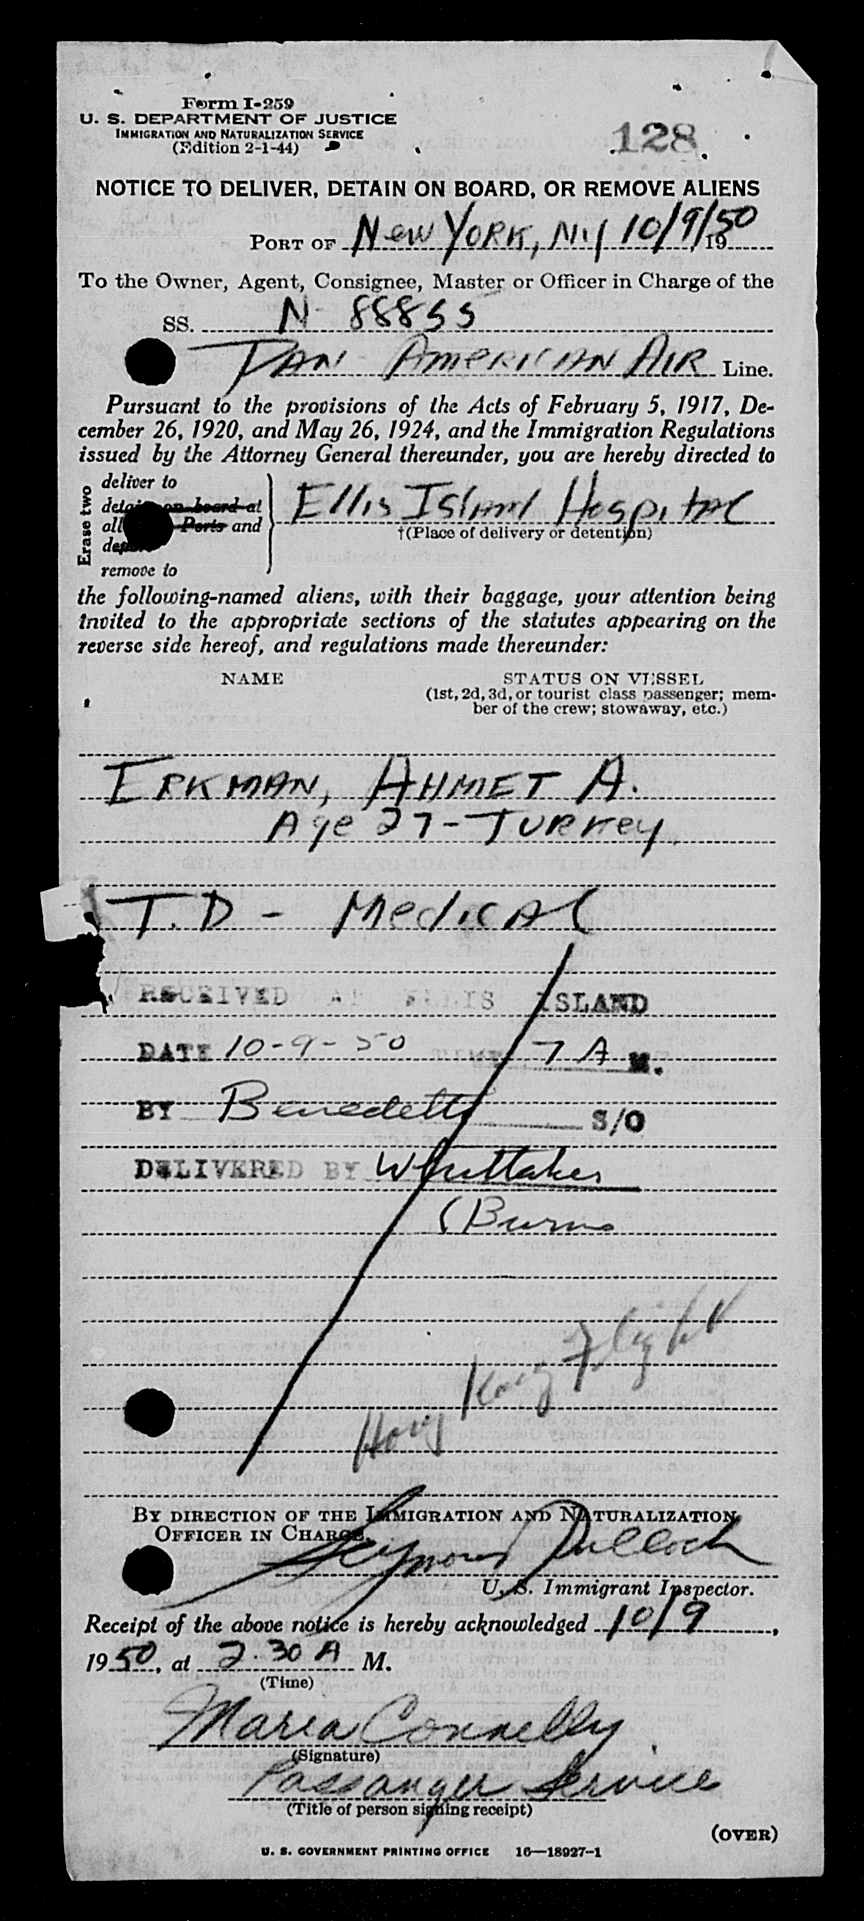 Form I-259
U. S. DEPARTMENT OF JUSTICE
IMMIGRATION AND NATURALIZATION SERVICE
(Edition 2-1-44)
128
NOTICE TO DELIVER, DETAIN ON BOARD, OR REMOVE ALIENS
PORT OF New York, N.Y 10/9/1950
To the Owner, Agent, Consignee, Master or Officer in Charge of the
SS. N-88855
Pan American Air Line.
Pursuant to the provisions of the Acts of February 5, 1917, De-
cember 26, 1920, and May 26, 1924, and the Immigration Regulations
issued by the Attorney General thereunder, you are hereby directed to
Erase two
deliver to
detain on board at
all Ports and
depart
remove to
Ellis Island Hospital
†(Place of delivery or detention)
the following-named aliens, with their baggage, your attention being
invited to the appropriate sections of the statutes appearing on the
reverse side hereof, and regulations made thereunder:
NAME STATUS ON VESSEL
(1st, 2d, 3d, or tourist class passenger; mem-
ber of the crew; stowaway, etc.)
ERKMAN, AHMET A.
Age 27 - TURKEY
T.D - Medical
RECEIVED AT ELLIS ISLAND
DATE 10-9-50 TIME 7 A M.
BY Benedetti S/O
DELIVERED BY Whittaker
(Burns
Hong Kong Flight
BY DIRECTION OF THE IMMIGRATION AND NATURALIZATION
OFFICER IN CHARGE.
Seymour
U. S. Immigrant Inspector.
Receipt of the above notice is hereby acknowledged 10/9,
1950, at 2.30 A M.
(Time)
Maria Connelly
(Signature)
Passanger Service
(Title of person signing receipt)
(OVER)
U. S. GOVERNMENT PRINTING OFFICE 16—18927-1